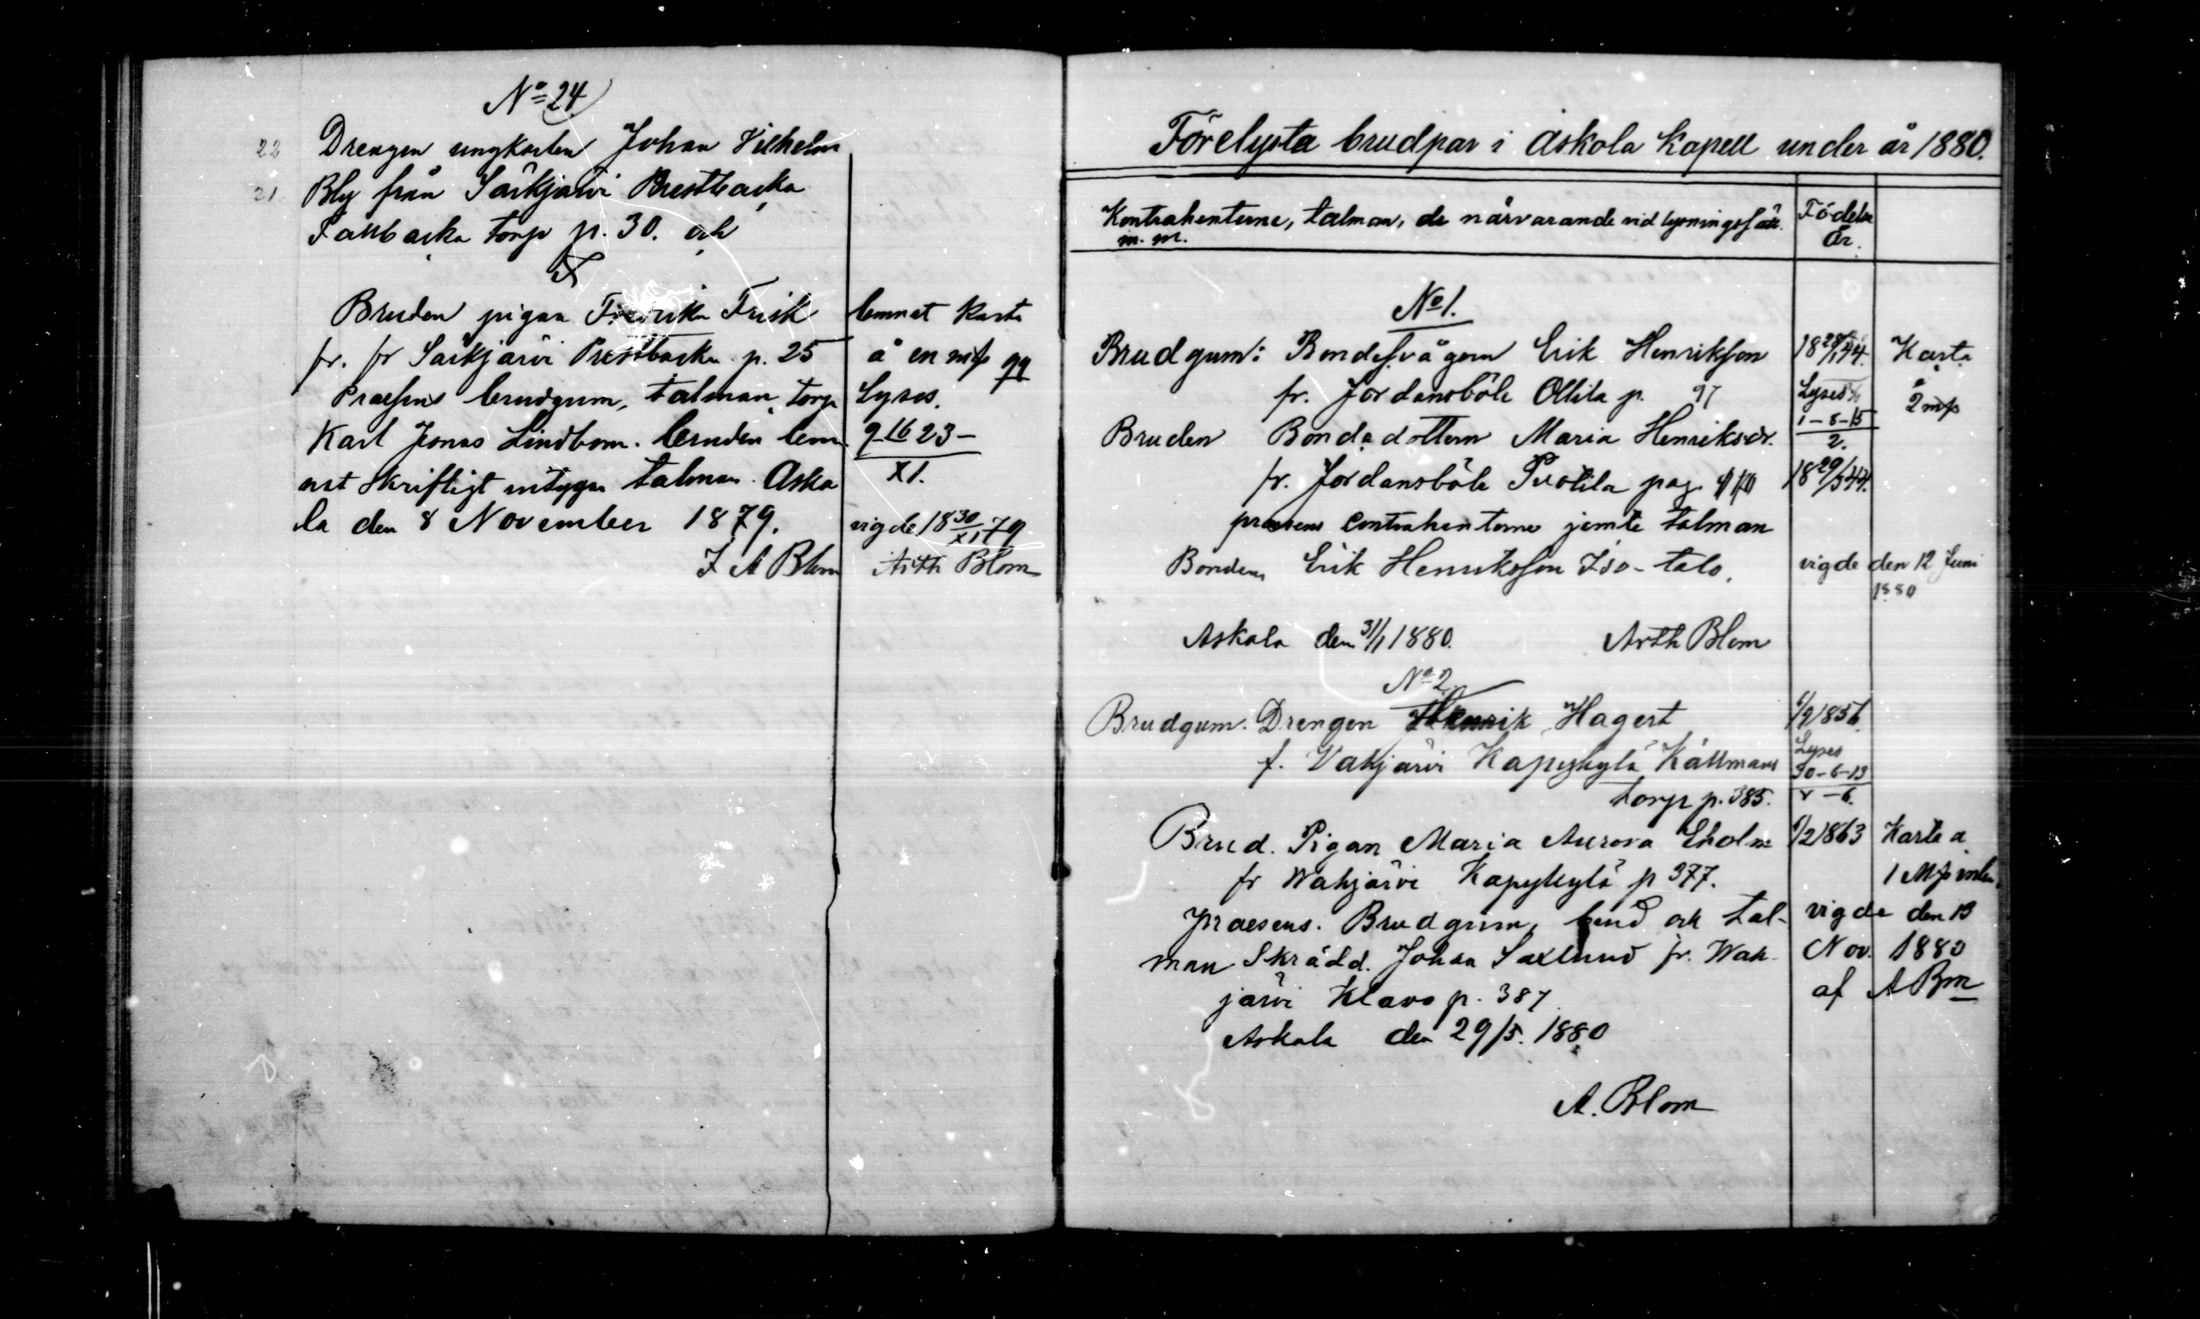 No 24
22 Drengen ungkarlen Johan Vilhelm
21 Bly från Särkjärvi Prestbacka
Fallbacka torp p. 30. och
Bruden pigan Fredrika Frisk
fr. fr Särkjärvi Prestbacka p. 25
Praesens brudgum, talman, torp
Karl Jonas Lindbom. bruden lem
nat skriftligt intygan talman. Asko
la den 8 November 1879.
J A Blom
lemnat Karta
à en mk
Lyses.
9 16 23 –
XI.
vigde 18 30/XI 79
Arth Blom
Förelysta brudpar i Askola Kapell under år 1880.
Kontrahenterne, talman, de närvarande vid lysningsfäst.
m. m.
Födelse
År.
No 1.
Brudgum: Bondesvågern Erik Henriksson
fr. Jordansböle Ollila p. 97
Karta
à
2 mk
Lyses
1–8–15
2.
Bruden Bondedottern Maria Henriksdr.
fr. Jordansböle Puolila pag.
praesens Contrahenterne jemte talman
Bonden Erik Henriksson Iso-talo.
vigde den 12 Juni
1880
Askola den 31/1 1880. Arth Blom
No 2
Brudgum. Drengen Henrik Hagert
f. Vakjärvi Kapykylä Källmans
torp p. 385.
1/9 1856
Lyses
30–6–13
v – 6.
Brud. Pigan Maria Aurora Ekholm 1/2 1863 Karta a
fr Wakjärvi Kapykylä p 377. 1 Mk
praesens. Brudgum, brud och tal- vigde den 13
man Skrädd. Johan Saxlund fr. Wak- Nov. 1880
järvi Klavs p. 387 af A Bm
Askola den 29/5. 1880
A. Blom